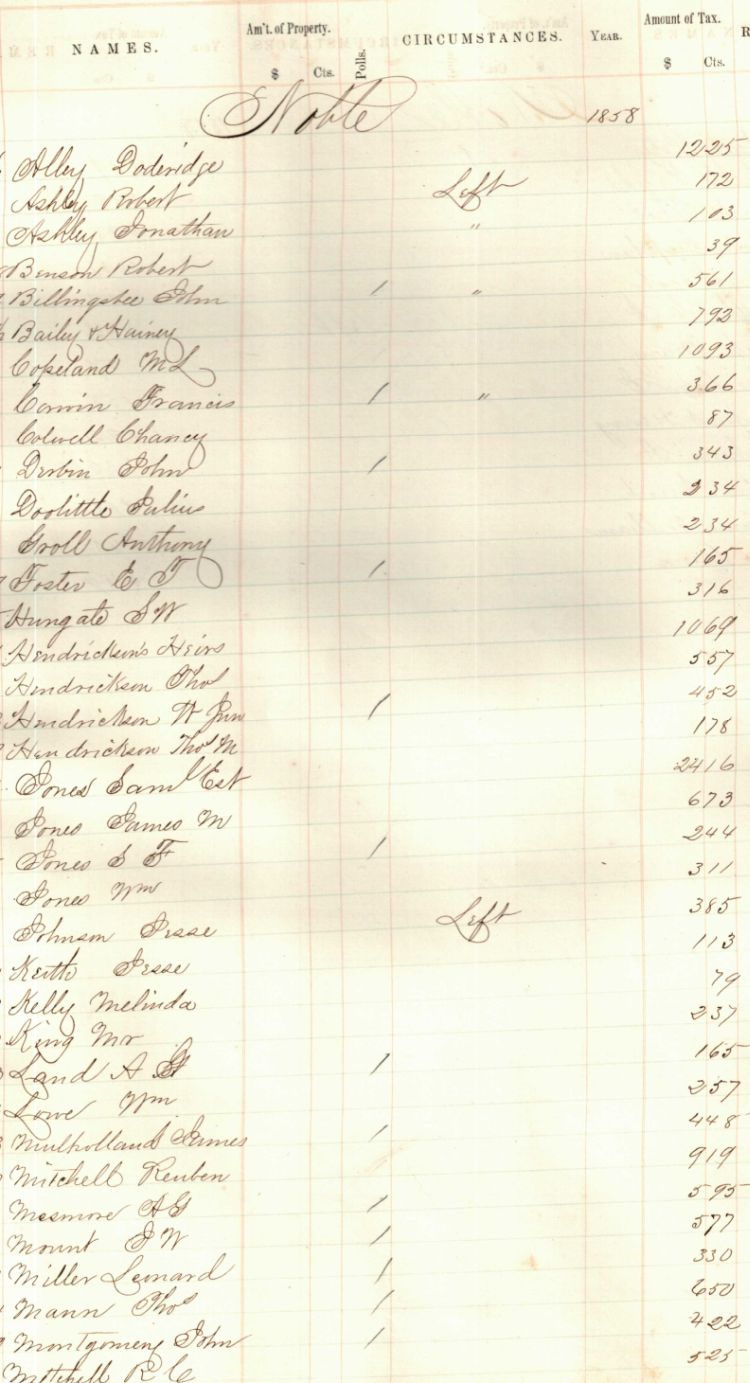 NAMES. Am't. of Property. $ Cts. Polls. CIRCUMSTANCES. YEAR. Amount of Tax. $ Cts. R
Noble 1858
Alley Doderidge 1225
Ashley Robert Left 172
Ashley Jonathan " 103
Benson Robert 39
Billingsbee John 1 " 561
Bailey & Hainey 793
Copeland M L 1093
Corwin Francis 1 " 366
Colwell Chancy 87
Durbin John 1 343
Doolittle Julius 234
Groll Anthony 234
Foster E T 1 165
Hungate S W 316
Hendrickson's Heirs 1069
Hendrickson Thos 557
Hendrickson W Jun 1 452
Hendrickson Thos M 178
Jones Saml Est 2416
Jones James M 673
Jones S F 1 244
Jones Wm 311
Johnson Jesse Left 385
Keith Jesse 113
Kelly Melinda 79
King Mr 237
Land A G 1 165
Lowe Wm 257
Mulholland James 1 448
Mitchell Reuben 919
Mesmore A G 1 595
Mount J W 1 577
Miller Leonard 1 330
Mann Thos 1 650
Montgomery John 1 422
Mitchell R C 525